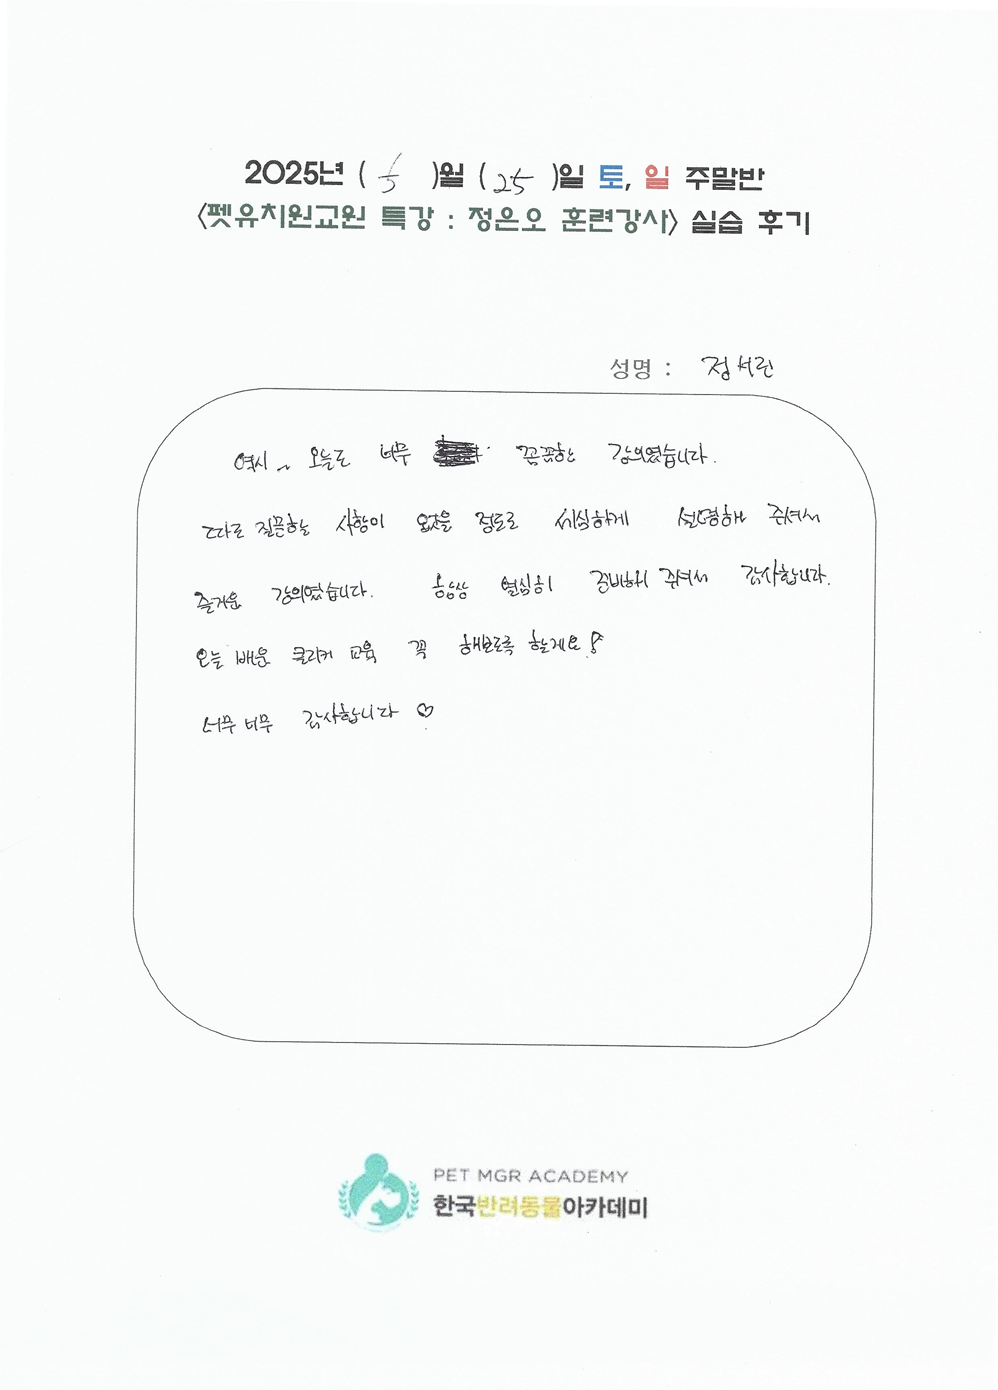 2025년 ( 5 )월 ( 25 )일 토, 일 주말반
<펫유치원교원 특강 : 정은오 훈련강사> 실습 후기
성명 : 정서린
역시~ 오늘도 너무 꼼꼼한 강의였습니다.
따로 질문할 사항이 없을 정도로 세심하게 설명해 주셔서
즐거운 강의였습니다. 항상 열심히 준비해 주셔서 감사합니다.
오늘 배운 클리커 교육 꼭 해보도록 할게요♪
너무너무 감사합니다 ♡
PET MGR ACADEMY
한국반려동물아카데미